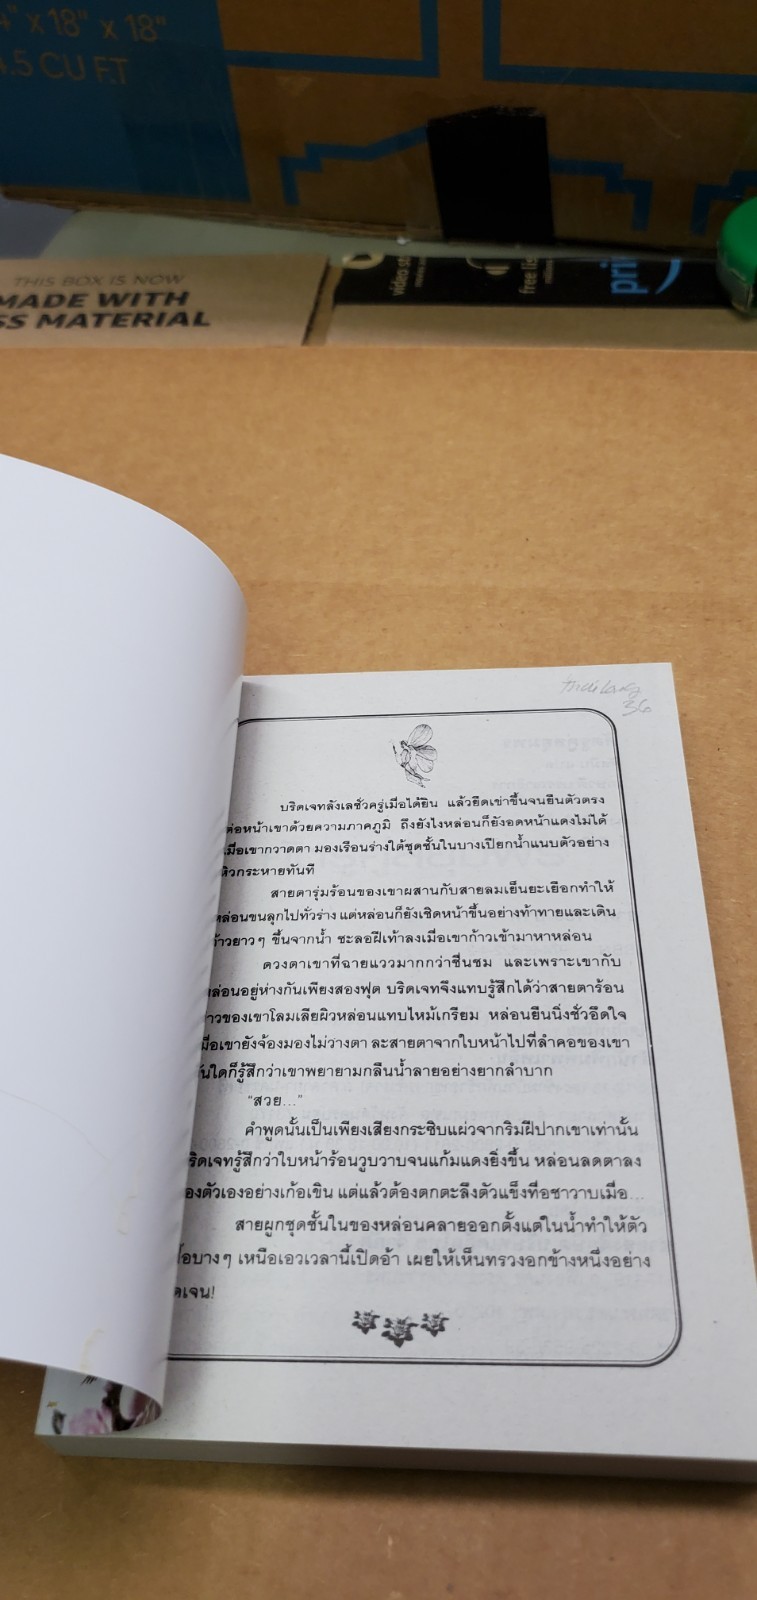 4" x 18" x 18"
4.5 CU FT
THIS BOX IS NOW
MADE WITH
SS MATERIAL
video
free
pri
36
บริดเจทลังเลชั่วครู่เมื่อได้ยิน แล้วยืดเข่าขึ้นจนยืนตัวตรง
ต่อหน้าเขาด้วยความภาคภูมิ ถึงยังไงหล่อนก็ยังอดหน้าแดงไม่ได้
เมื่อเขากวาดตา มองเรือนร่างใต้ชุดชั้นในบางเปียกน้ำแนบตัวอย่าง
หิวกระหายทันที
สายตารุ่มร้อนของเขาผสานกับสายลมเย็นยะเยือกทำให้
หล่อนขนลุกไปทั่วร่าง แต่หล่อนก็ยังเชิดหน้าขึ้นอย่างท้าทายและเดิน
ก้าวยาวๆ ขึ้นจากน้ำ ชะลอฝีเท้าลงเมื่อเขาก้าวเข้ามาหาหล่อน
ดวงตาเขาที่ฉายแววมากกว่าชื่นชม และเพราะเขากับ
หล่อนอยู่ห่างกันเพียงสองฟุต บริดเจทจึงแทบรู้สึกได้ว่าสายตาร้อน
าวของเขาโลมเลียผิวหล่อนแทบไหม้เกรียม หล่อนยืนนิ่งชั่วอึดใจ
มื่อเขายังจ้องมองไม่วางตา ละสายตาจากใบหน้าไปที่ลำคอของเขา
ันใดก็รู้สึกว่าเขาพยายามกลืนน้ำลายอย่างยากลำบาก
"สวย..."
คำพูดนั้นเป็นเพียงเสียงกระซิบแผ่วจากริมฝีปากเขาเท่านั้น
ริดเจทรู้สึกว่าใบหน้าร้อนวูบวาบจนแก้มแดงยิ่งขึ้น หล่อนลดตาลง
องตัวเองอย่างเก้อเขิน แต่แล้วต้องตกตะลึงตัวแข็งที่อชาวาบเมื่อ...
สายผูกชุดชั้นในของหล่อนคลายออกตั้งแต่ในน้ำทำให้ตัว
ื้อบางๆ เหนือเอวเวลานี้เปิดอ้า เผยให้เห็นทรวงอกข้างหนึ่งอย่าง
ดเจน!